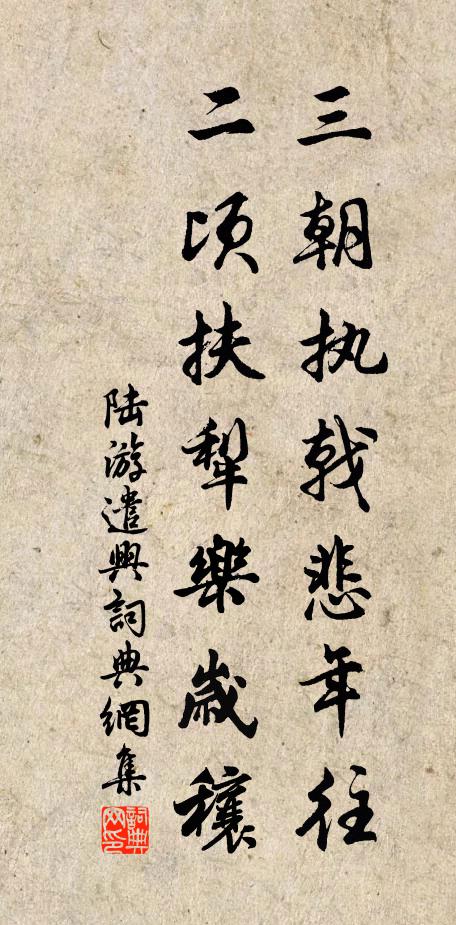 三朝执戟悲年往
二顷扶犁樂歲穰
陆游遣興詞典網集
詞典网印